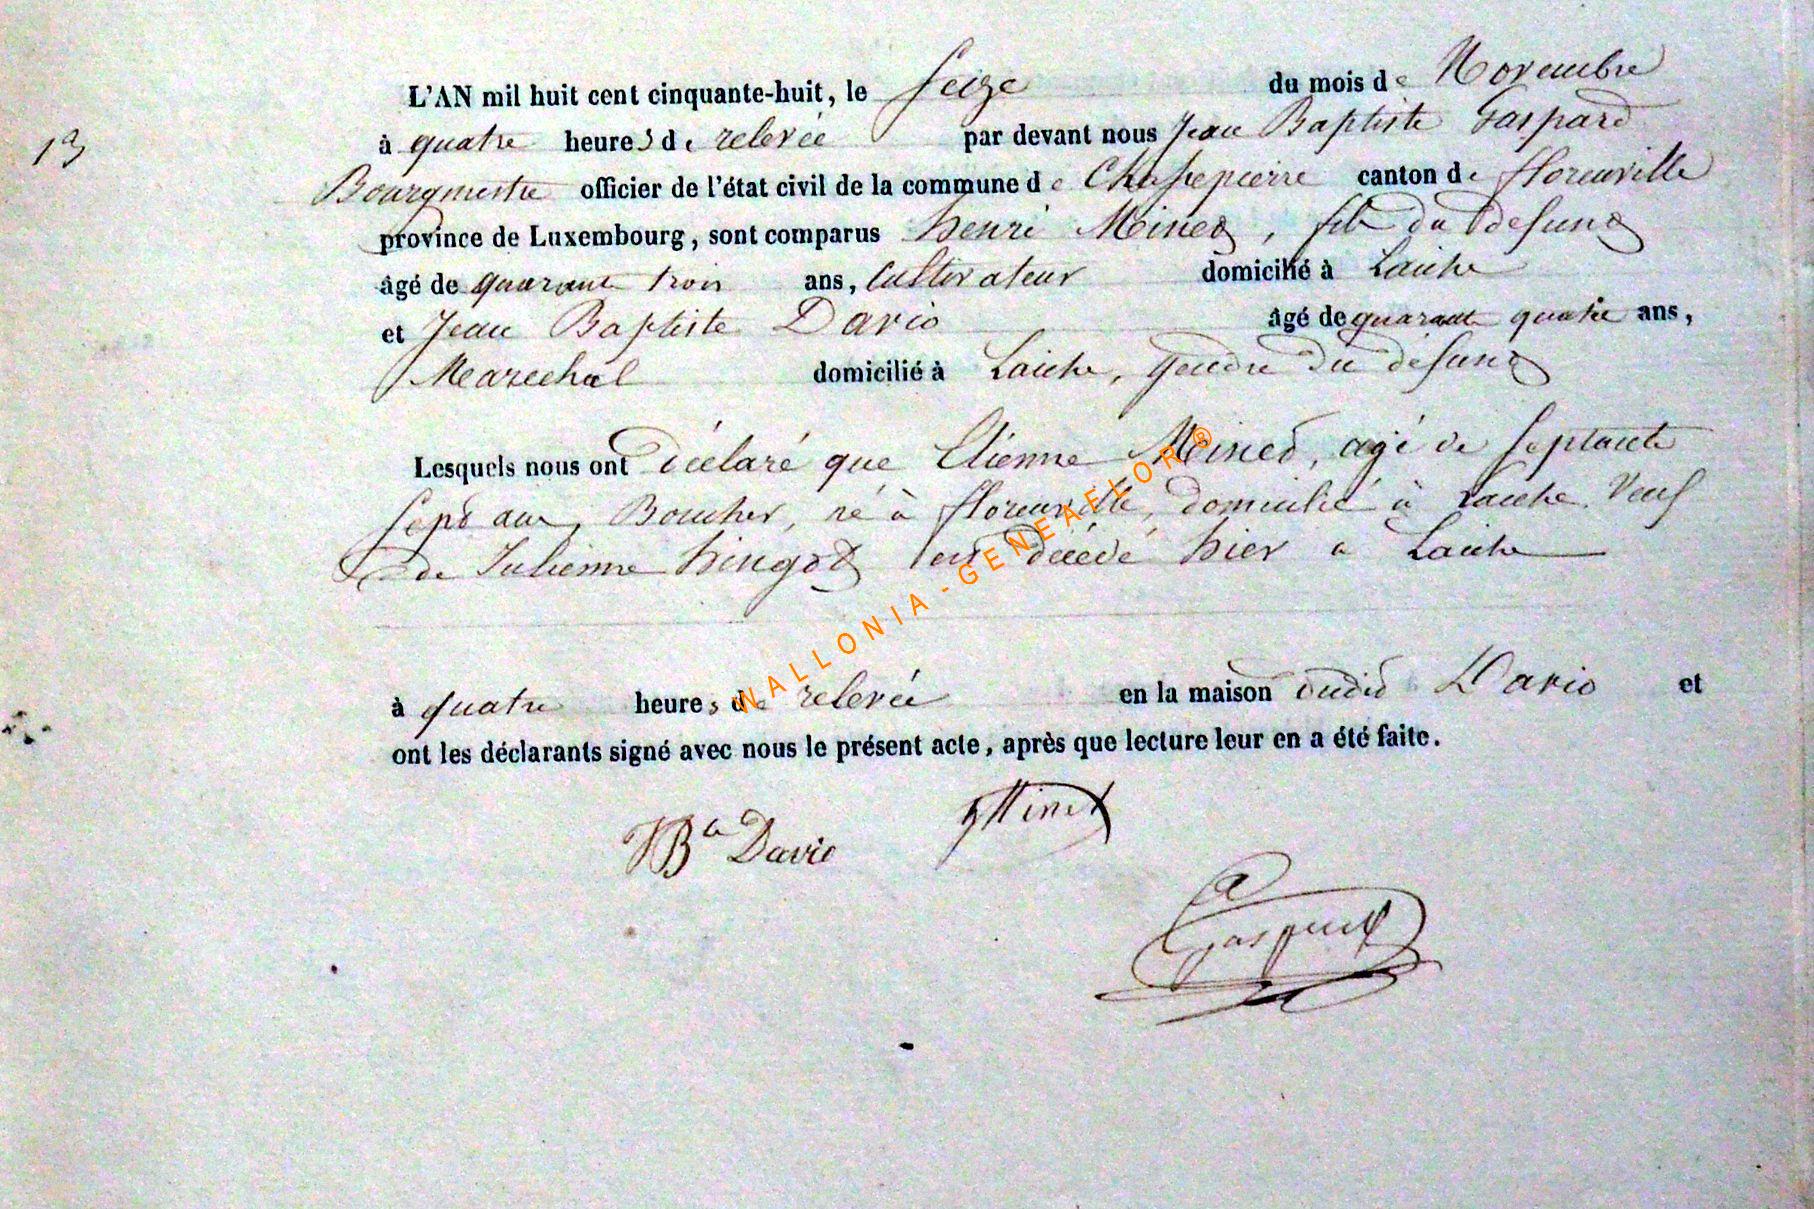 L'AN mil huit cent cinquante-huit, le Seize du mois de Novembre
13
à quatre heures de relevée par devant nous Jean Baptiste Gaspard
Bourgmestre officier de l'état civil de la commune de Chassepierre canton de florenville
province de Luxembourg, sont comparus henri Meined, fils du defund
âgé de quarante trois ans, Cultivateur domicilié à Laiche
et Jean Baptiste Dario âgé de quarante quatre ans,
Marechal domicilié à Laiche, gendre du défund
Lesquels nous ont déclaré que Etienne Meined, agé de septante
sepd ans, Boucher, né à florenville, domicilié à Laiche. Veuf
de Julienne hingod est décédé hier a Laiche
WALLONIA-GENEAELOR®
à quatre heures de relevée en la maison dudid Dario et
ont les déclarants signé avec nous le présent acte, après que lecture leur en a été faite.
JBte Dario
Gaspard